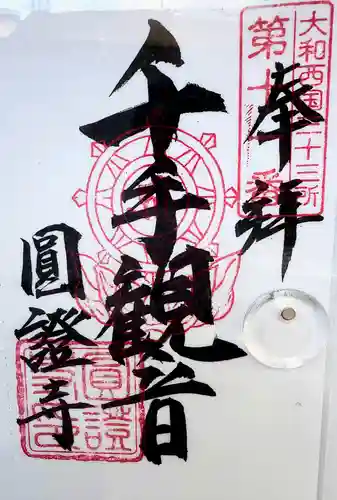 奉拝
大和西国三十三所
第十一番
千手観音
圓證寺
圓證